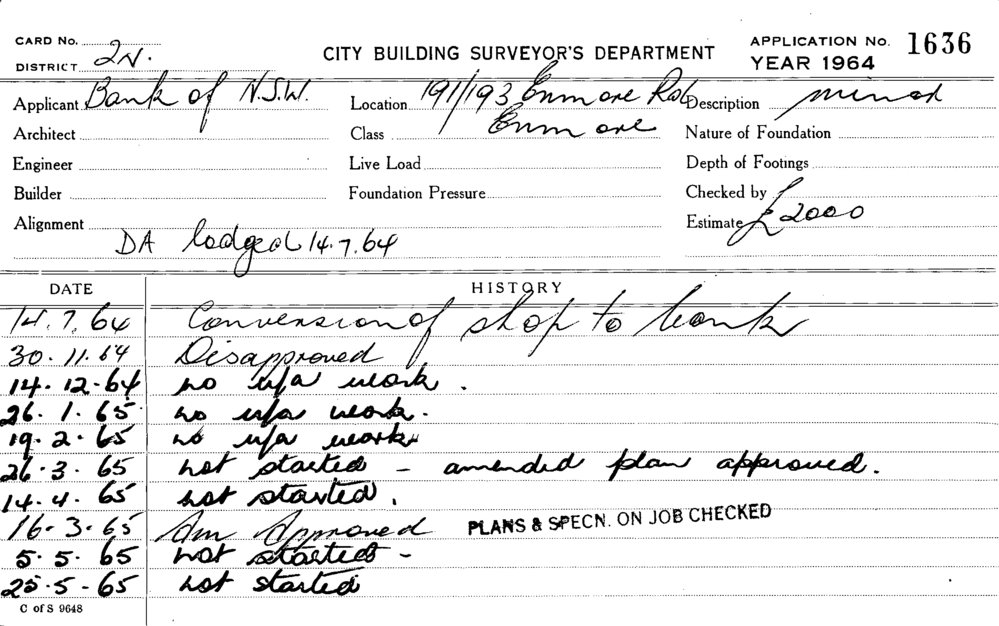 CARD No. 2N. CITY BUILDING SURVEYOR'S DEPARTMENT APPLICATION No. 1636
DISTRICT YEAR 1964
Applicant Bank of N.S.W. Location 191/193 Enmore Rd Description minor
Architect Class Enmore Nature of Foundation
Engineer Live Load Depth of Footings
Builder Foundation Pressure Checked by
Alignment Estimate £2000
DA lodged 14.7.64
DATE HISTORY
14.7.64 Conversion of shop to bank
30.11.64 Disapproved
14.12.64 no u/a work.
26.1.65 no u/a work.
19.2.65 no u/a work
26.3.65 not started - amended plan approved.
14.4.65 not started.
16.3.65 Am Approved PLANS & SPECN. ON JOB CHECKED
5.5.65 not started -
25.5-65 not started
C of S 9648